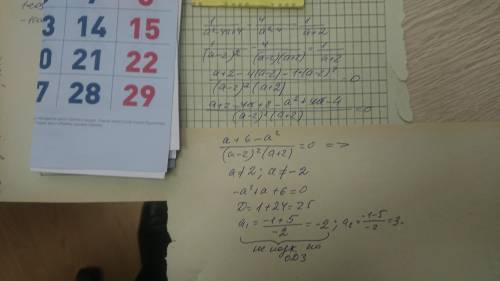 7 8
13 14 15
20 21 22
27 28 29
1/(a²-4a+4) - 4/(a²-4) = 1/(a+2)
1/(a-2)² - 4/((a-2)(a+2)) = 1/(a+2)
(a+2-4(a-2)-1·(a-2)²)/((a-2)²(a+2)) = 0
(a+2-4a+8-a²+4a-4)/((a-2)²(a+2)) = 0
(a+6-a²)/((a-2)²(a+2)) = 0 =>
a≠2; a≠-2
-a²+a+6=0
D=1+24=25
a₁=(-1+5)/(-2)=-2; a₂=(-1-5)/(-2)=3.
не подх. по
ОДЗ